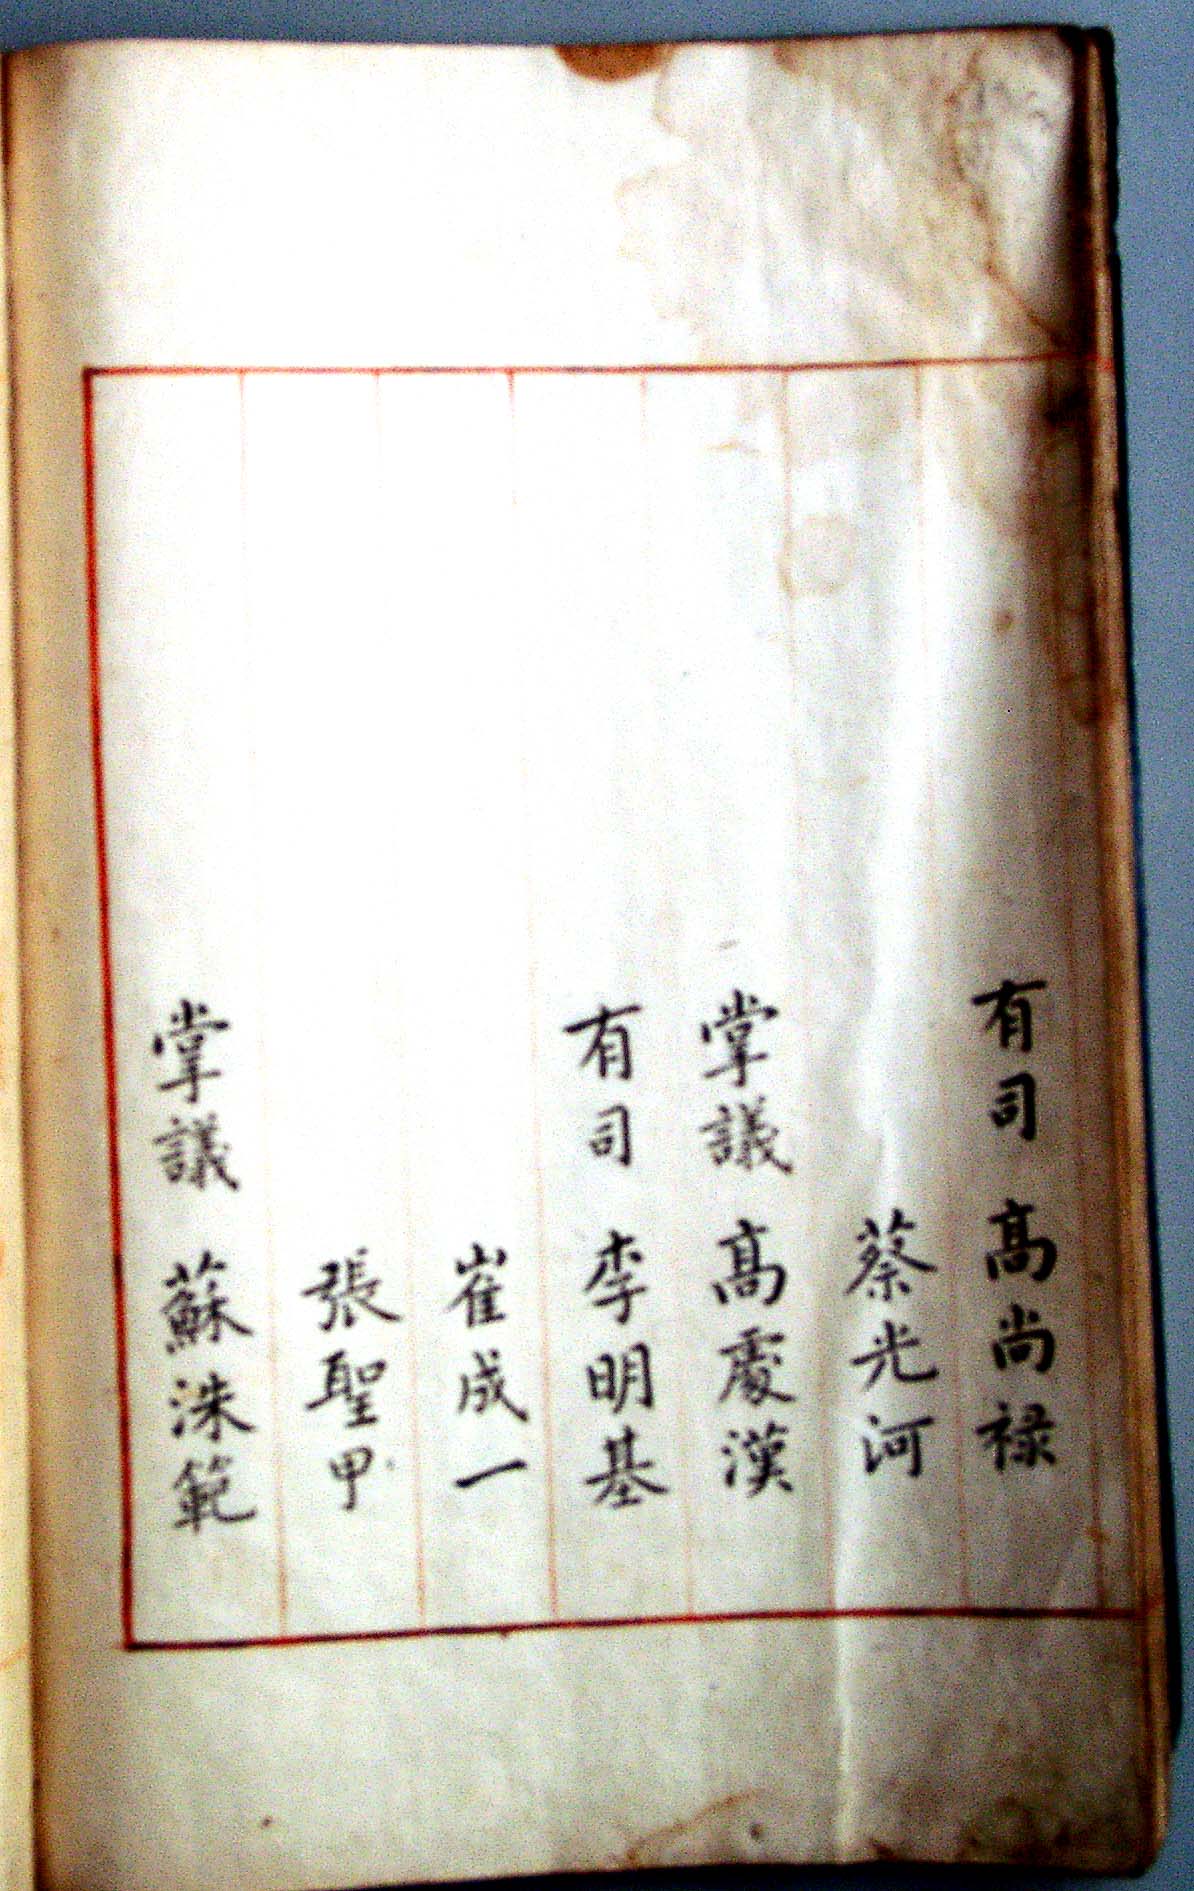 有司 高尚祿
蔡光河
掌議 高處漢
有司 李明基
崔成一
張聖甲
掌議 蘇洙範